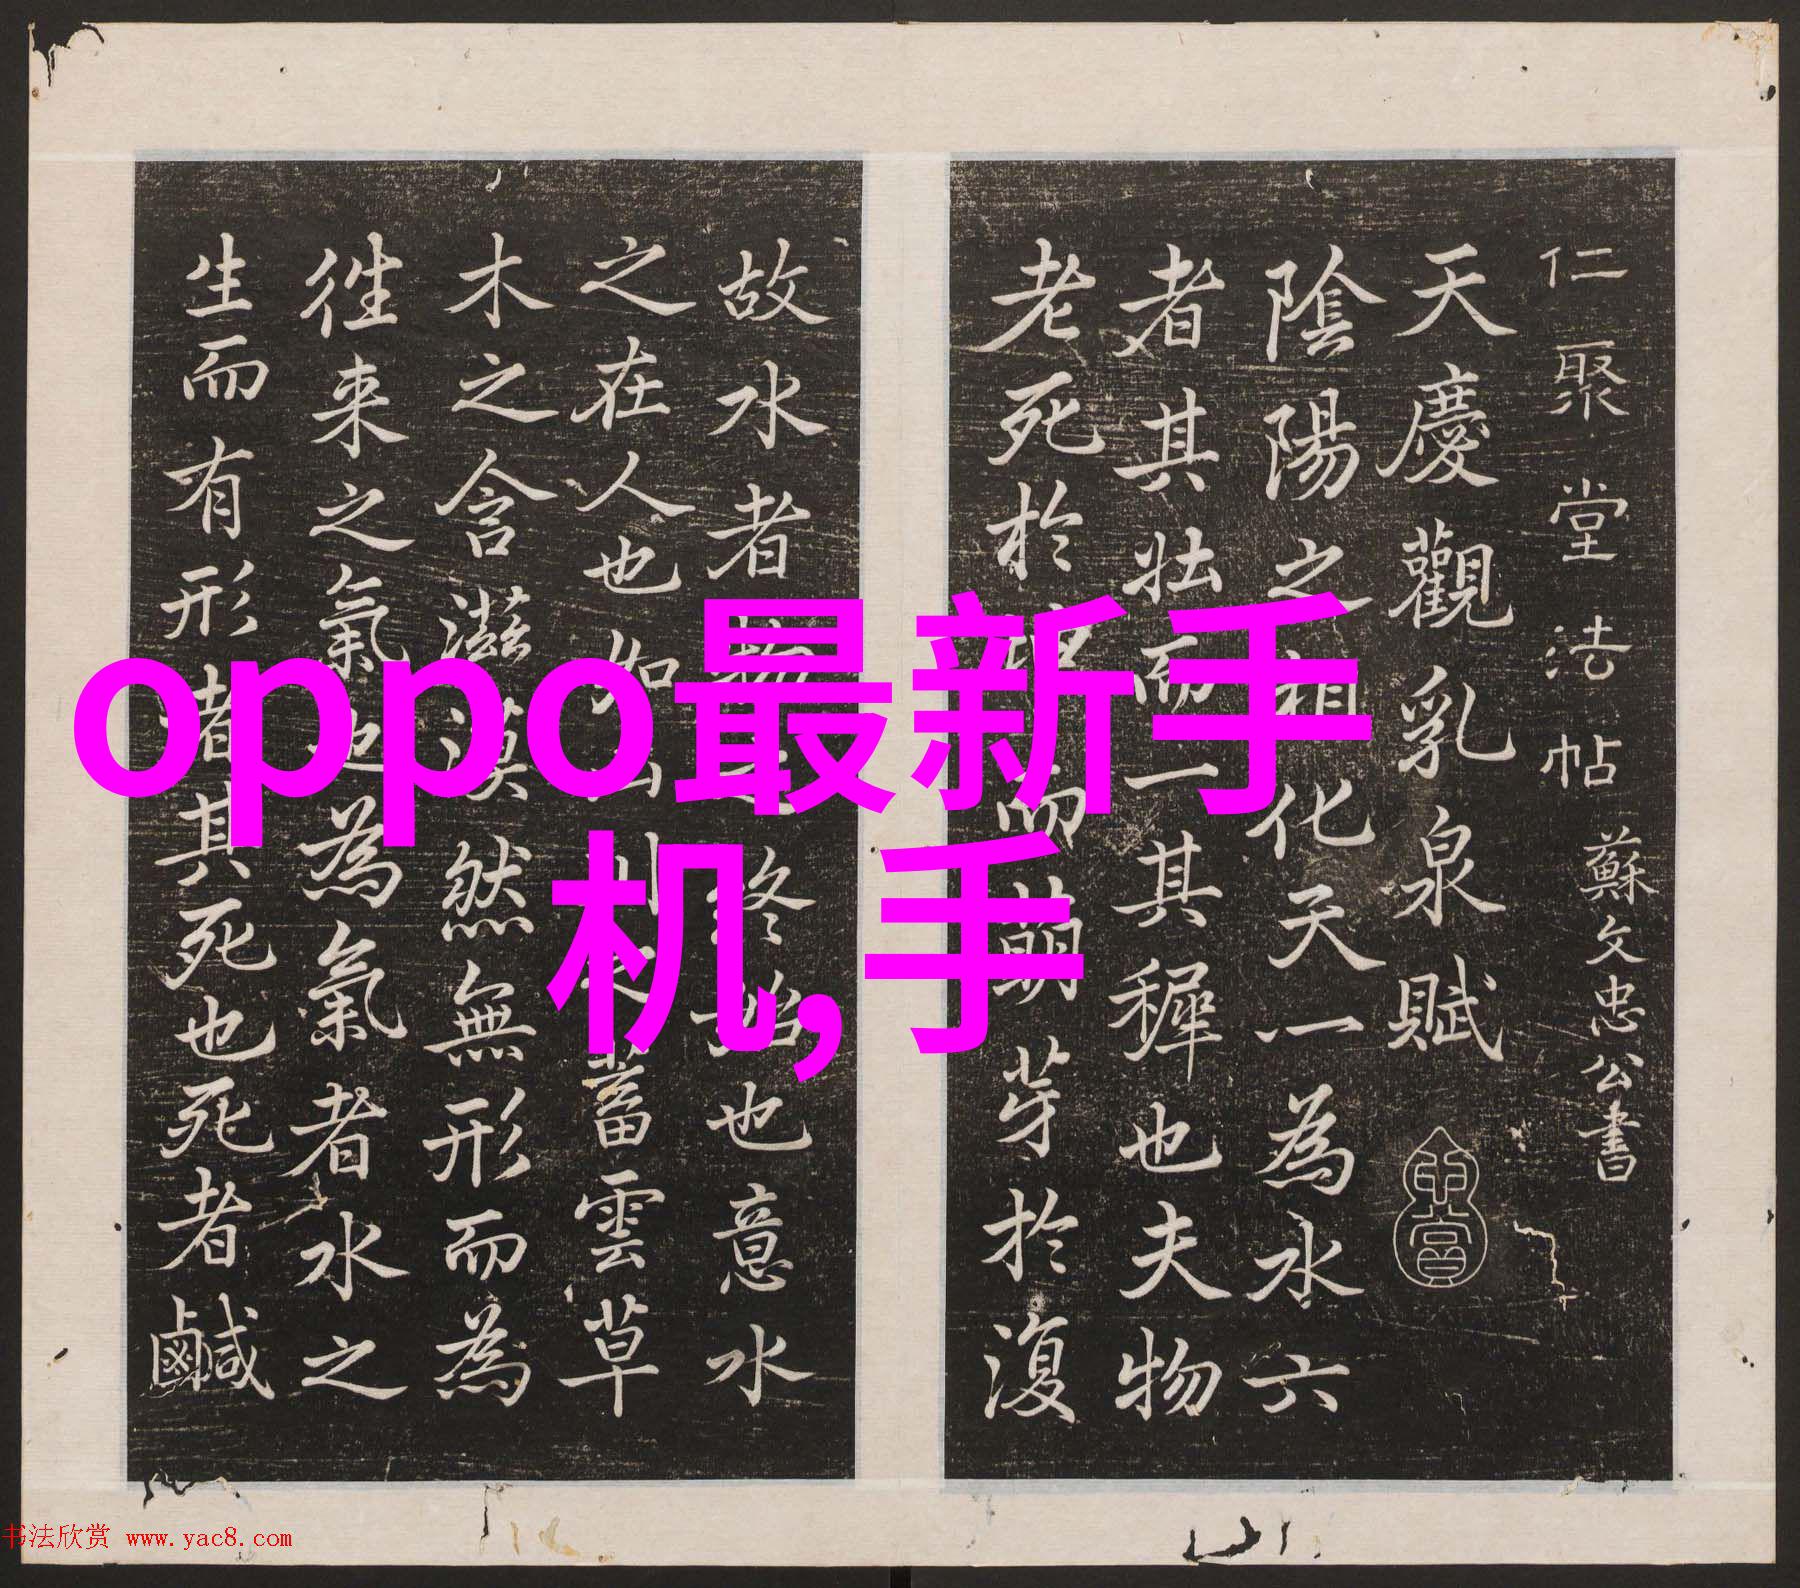 oppo最新手
机,手
仁聚堂法帖 蘇文忠公書
天慶觀乳泉賦
陰陽之相化天一為水六
者其壮而一其穉也夫物
老死於而萌芽於復
故水者物之終始也意水
之在人也如山川之蓄雲草
木之含滋漠然無形而為
往来之氣也為氣者水之
生而有形者其死也死者鹹
书法欣赏 www.yac8.com